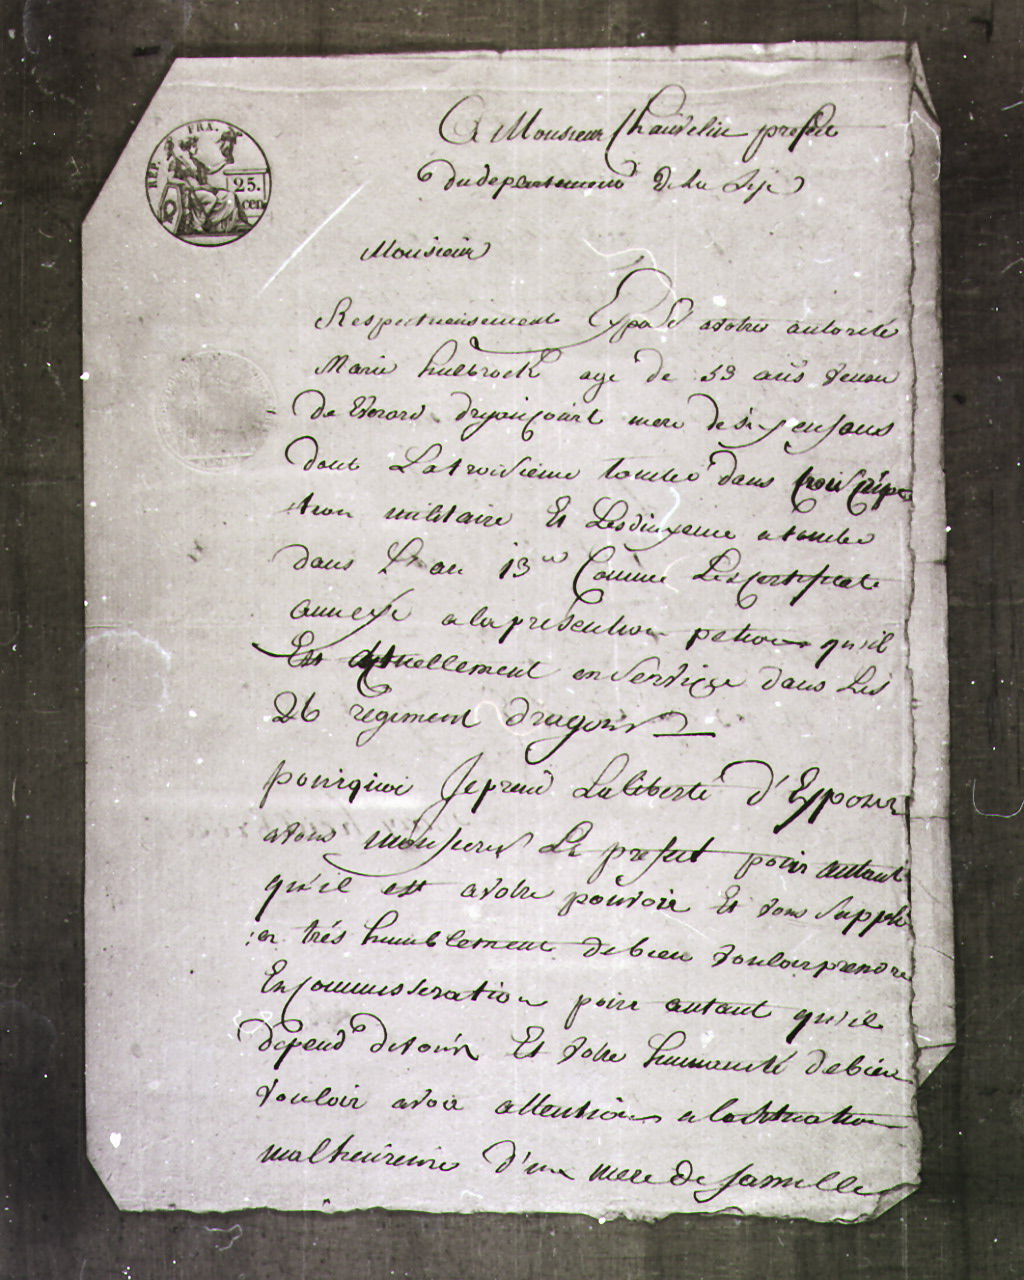 REP. FRA.
25.
cen
A Monsieur Chauvelin prefect
du departement de la Lys
Monsieur
Respectueusement Expose a votre autorité
Marie hulbrock age de 53 ans veuve
de Everard mere de six enfans
dont La troisieme tombé dans Conscrip
tion militaire Et Les dixieme a tombé
dans L an 13 me Comme Les certificate
annexe a la presention petion qu'il
Est actuellement en Service dans Les
26 regiment dragons
pourquoi Je prend La liberté d'Exposer
a vous monsieur Le prefect pour autant
qu'il est a votre pouvoir Et vous Suppli
er trés humblement de bien vouloir prendre
En commiseration pour autant qu'il
dépend de vous Et votre humanité de bien
vouloir avoir attention a la situation
malheureuse d'une mere de famille